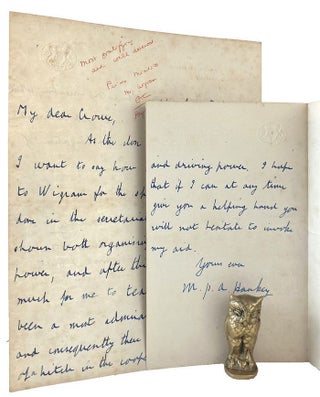 Most gratifying
and well deserved
My dear Crowe,
As the don
I want to say how
to Wigram for the sp
done in the secretariat
shown both organisin
power, and after the
much for me to tea
been a most admira
and consequently ther
of a hitch in the coop
and driving power. I hope
that if I can at any time
give you a helping hand you
will not hesitate to invoke
my aid.
Yours ever
M. P. A. Hankey